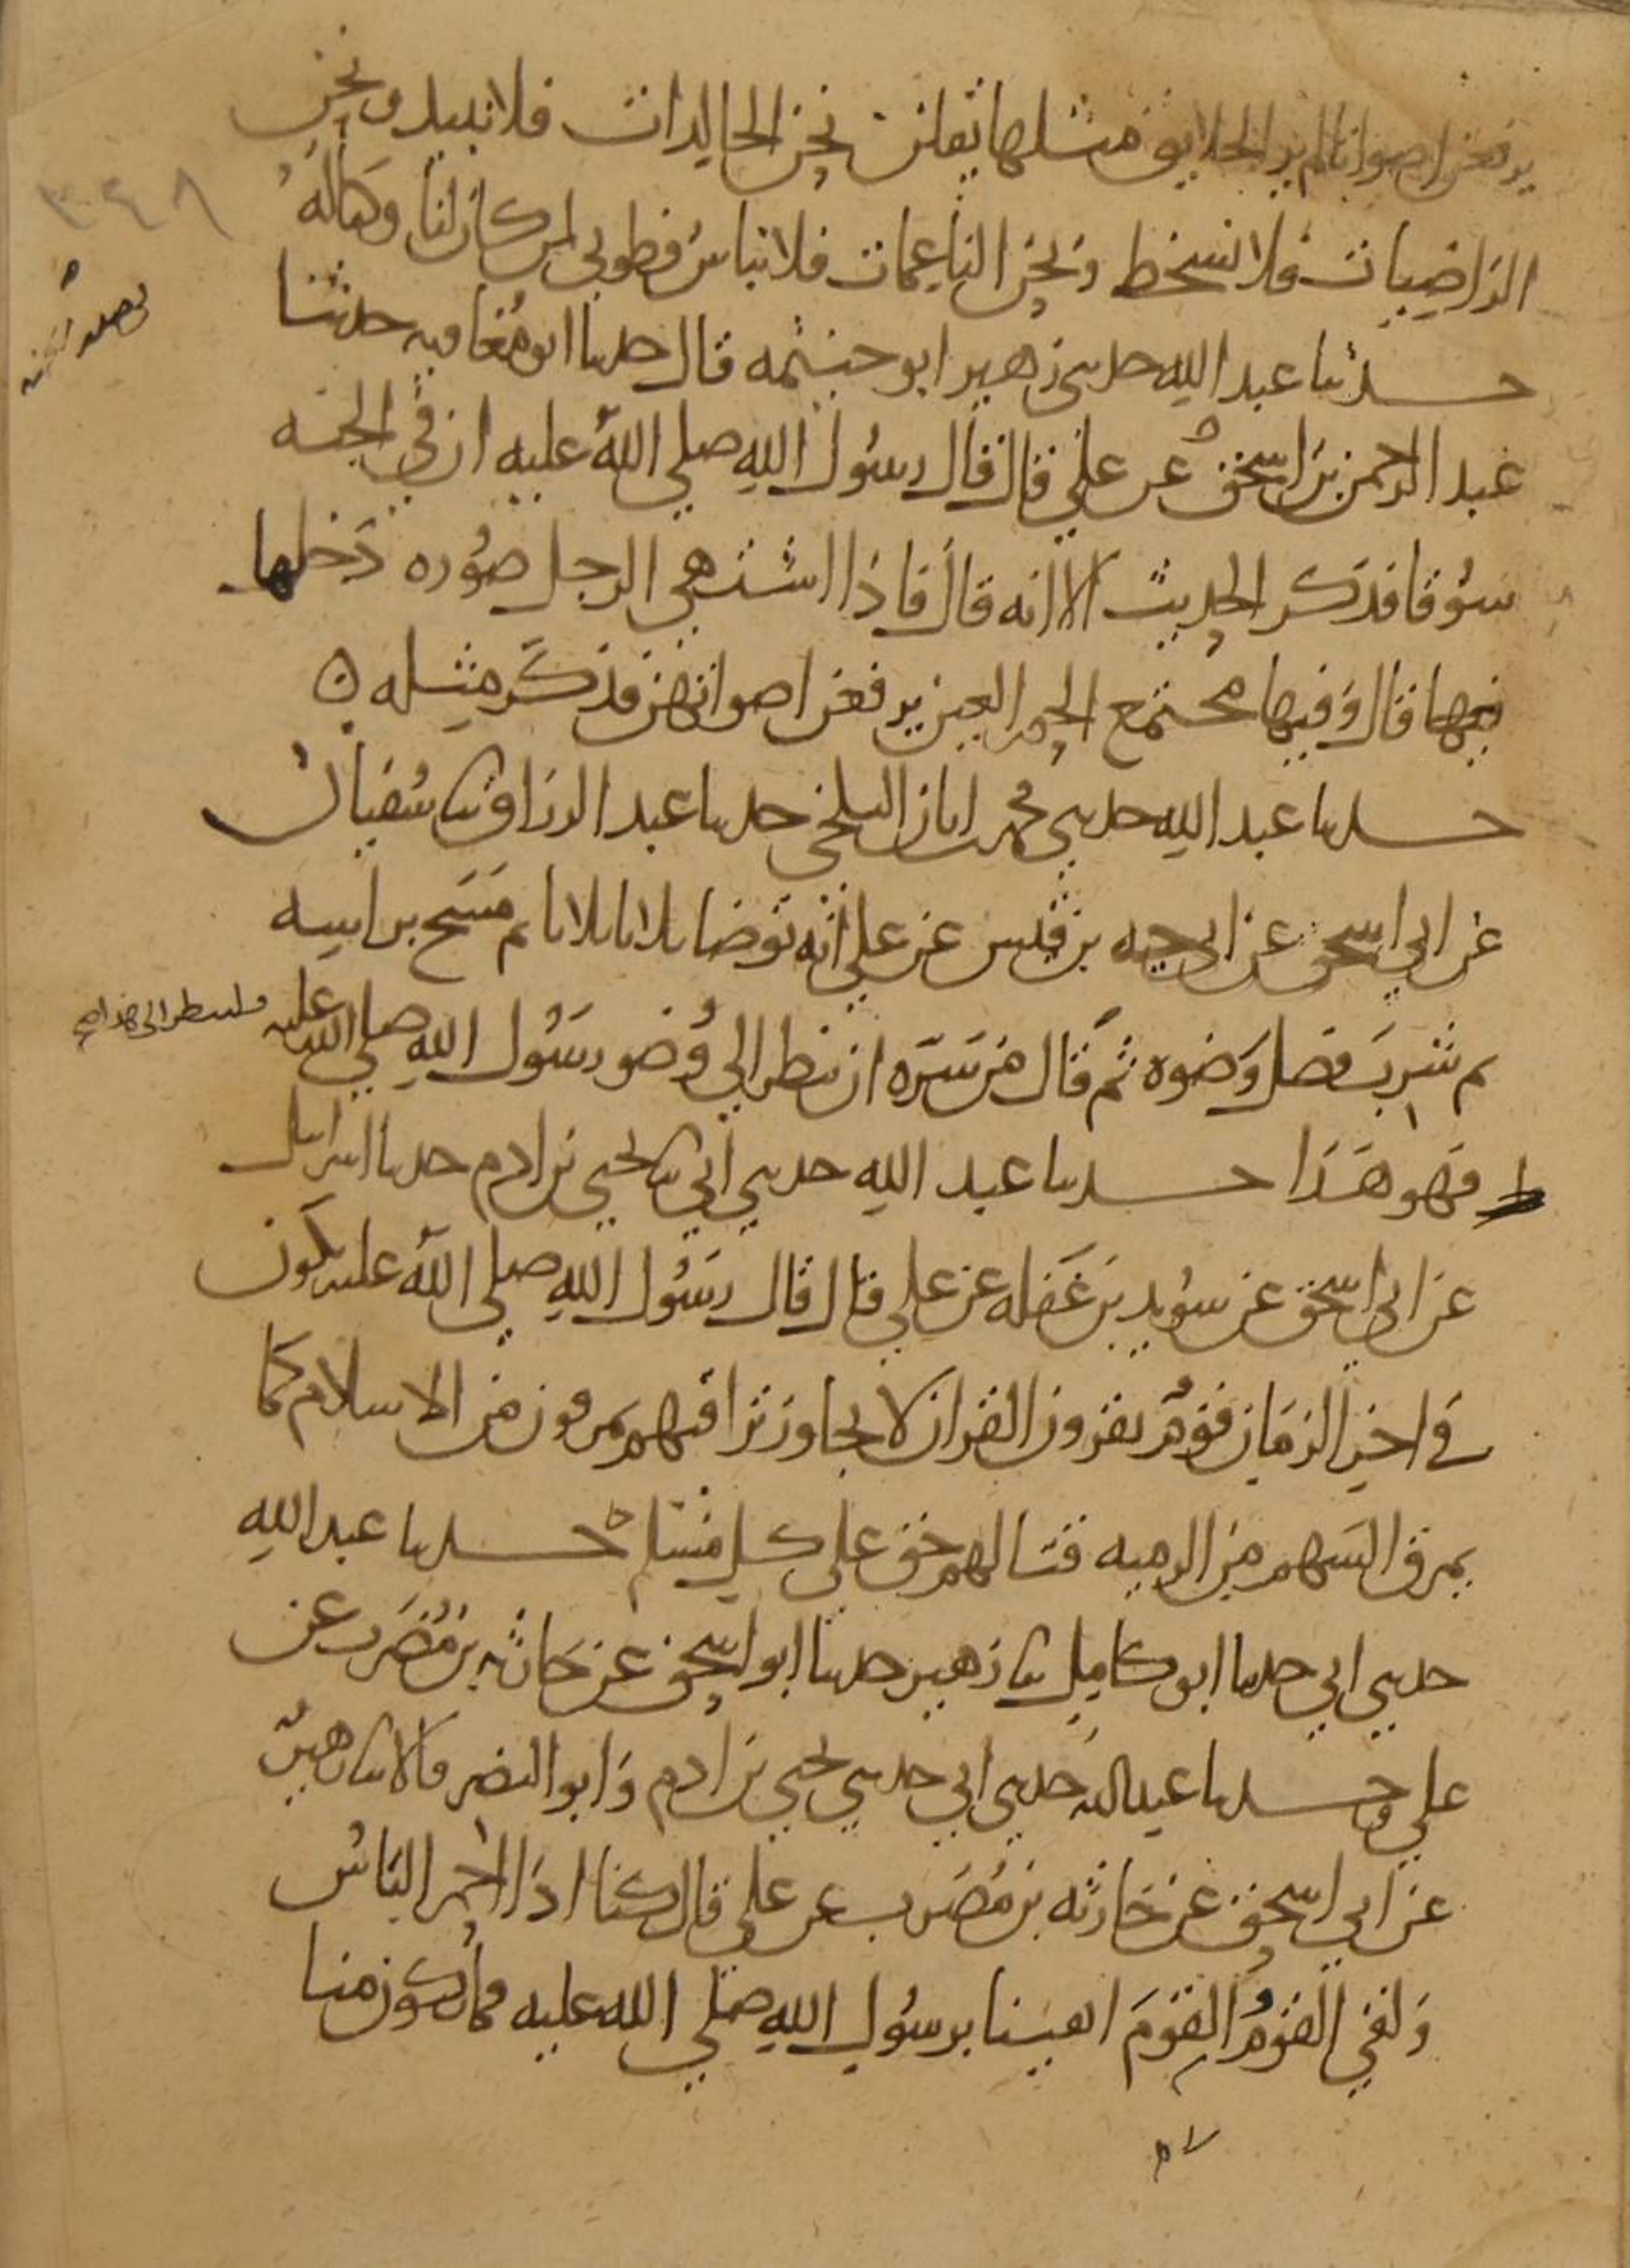 يرفعن اصواتا لم ير الخلايق مثلها يقلن نحن الخالدات فلا نبيد ونحن
الراضيات فلا نسخط ونحن الناعمات فلا نباس فطوبى لمن كان لنا وكنا له
٣٤٨
حدثنا عبد الله حدثني زهير ابو خيثمه قال حدثنا ابو معاويه حدثنا
عبد الرحمن بن اسحق عن علي قال قال رسول الله صلى الله عليه ان في الجنه
سوقا فذكر الحديث الا انه قال فاذا اشتهى الرجل صوره دخلها
فيها قال وفيها مجتمع الحور العين يرفعن اصواتهن فذكر مثله ه
حدثنا عبد الله حدثني محمد بن ابان البلخي حدثنا عبد الرزاق ثنا سفيان
عن ابي اسحق عن ابي حيه بن قيس عن علي انه توضا ثلاثا ثلاثا ثم مسح براسه
ثم شرب فضل وضوه ثم قال من سره ان ينظر الى وضو رسول الله صلى الله عليه
فلينظر الى هذا صح
فهو هذا حدثنا عبد الله حدثني ابي ثنا يحيى بن ادم حدثنا اسرائيل
عن ابي اسحق عن سويد بن غفله عن علي قال قال رسول الله صلى الله عليه يكون
في اخر الزمان قوم يقرون القران لا يجاوز تراقيهم يمرقون من الاسلام كما
يمرق السهم من الرميه قتالهم حق على كل مسلم ه حدثنا عبد الله
حدثني ابي حدثنا ابو كامل ثنا زهير حدثنا ابو اسحق عن حارثه بن مضرب عن
علي وحدثنا عبد الله حدثني ابي حدثني يحيى بن ادم وابو النضر قالا ثنا زهير
عن ابي اسحق عن حارثه بن مضرب عن علي قال كنا اذا احمر الباس
ولقي القوم القوم اتقينا برسول الله صلى الله عليه فما يكون منا